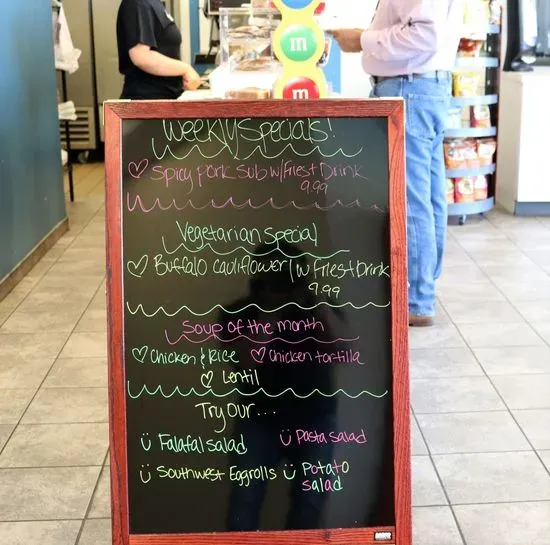 m
m
Weekly Specials!
Spicy pork Sub w/Fries+Drink
9.99
Vegetarian Special
Buffalo cauliflower/w Fries+Drink
9.99
Soup of the month
Chicken & Rice Chicken tortilla
Lentil
Try our...
Falafal salad Pasta salad
Southwest Eggrolls Potato
salad